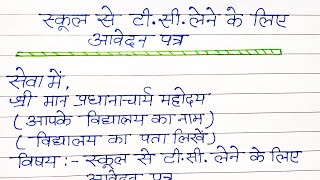 स्कूल से टी.सी. लेने के लिए
आवेदन पत्र
सेवा में,
श्री मान प्रधानाचार्य महोदय
( आपके विद्यालय का नाम )
( विद्यालय का पता लिखें )
विषय :- स्कूल से टी.सी. लेने के लिए
आवेदन पत्र